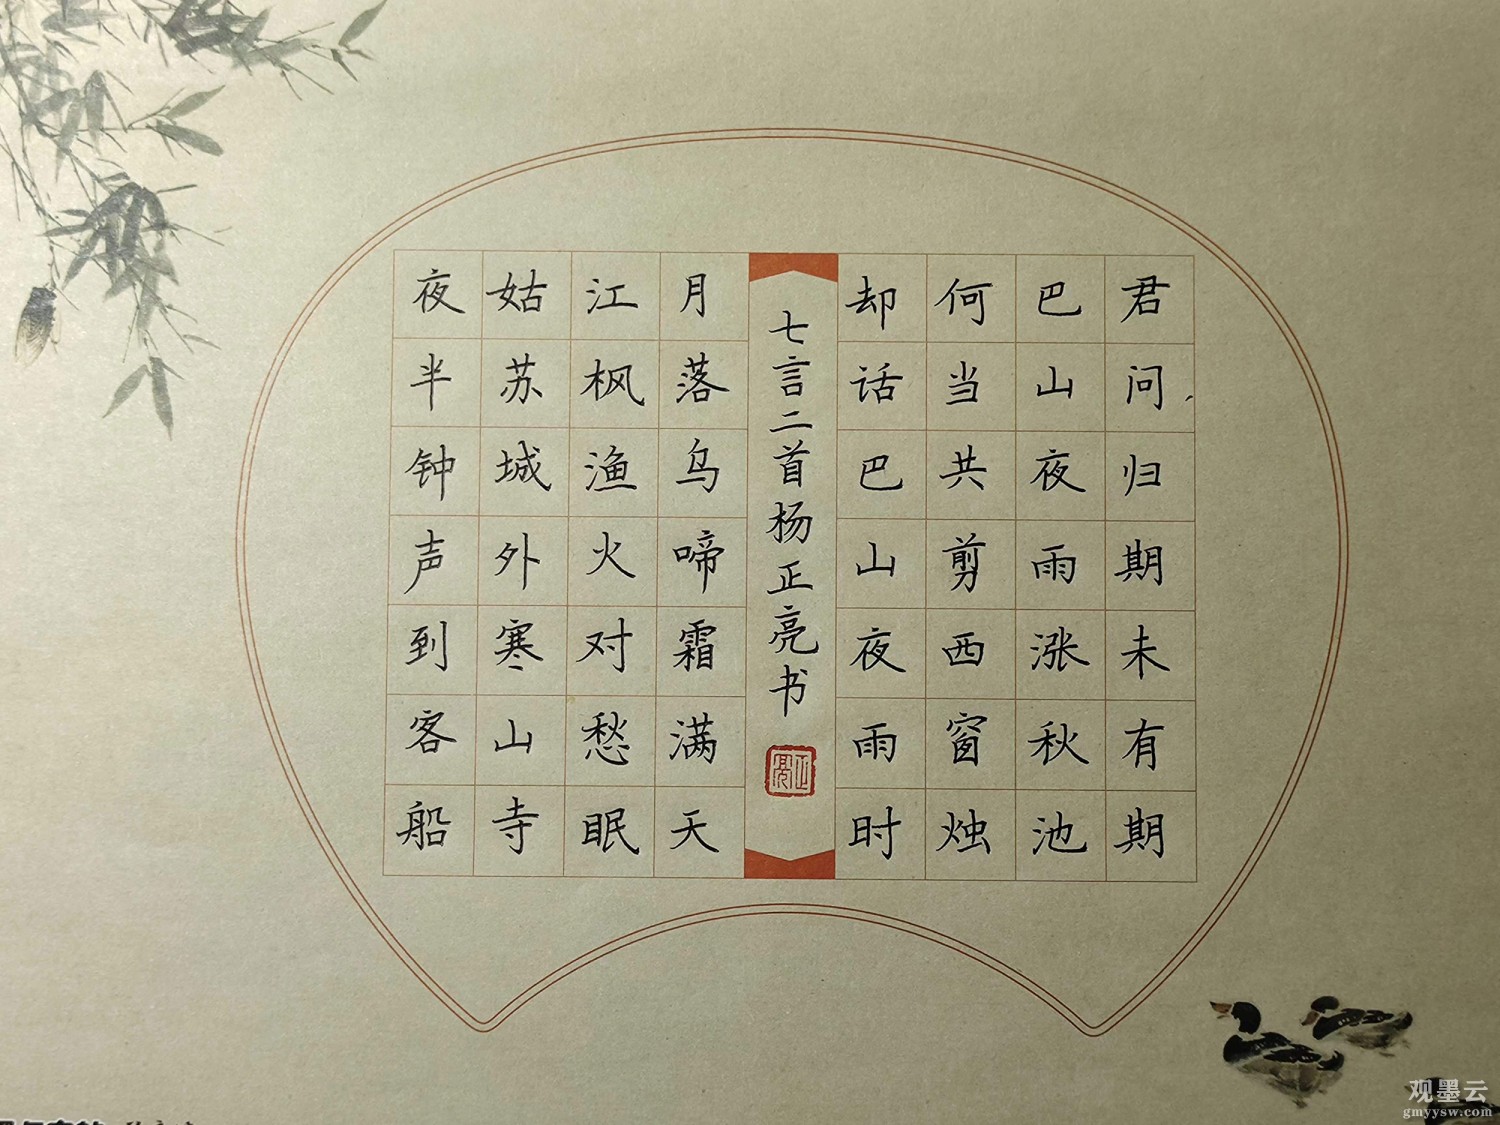 君问归期未有期
巴山夜雨涨秋池
何当共剪西窗烛
却话巴山夜雨时
七言二首杨正亮书
正亮
月落乌啼霜满天
江枫渔火对愁眠
姑苏城外寒山寺
夜半钟声到客船
观墨云
gmyysw.com